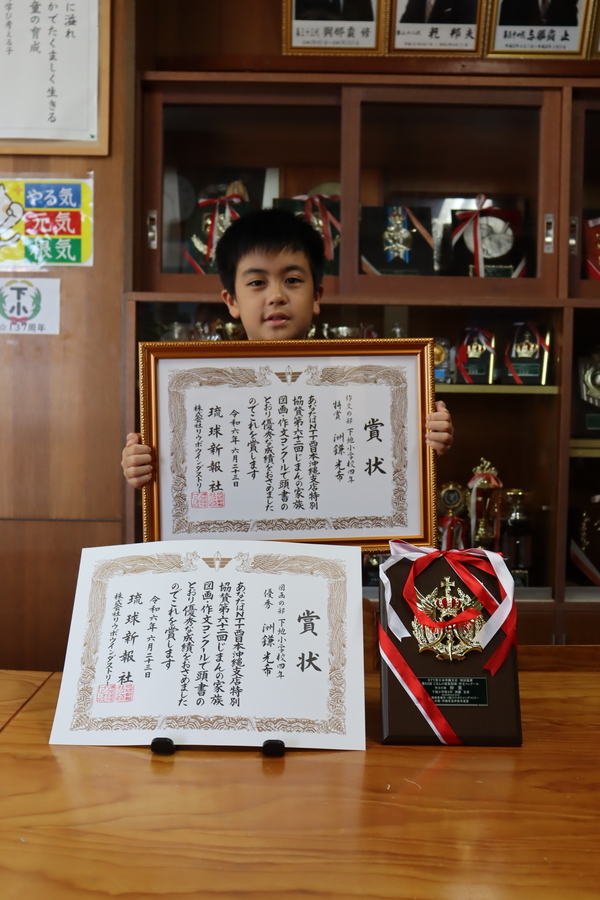 に溢れ
かでたくましく生きる
童の育成
学び考える子
やる気
元気
根気
下
小
137周年
賞状
作文の部 下地小学校四年
特賞 洲鎌光希
あなたはNTT西日本沖縄支店特別
協賛第六十二回じまんの家族
図画・作文コンクールで頭書の
とおり優秀な成績をおさめました
のでこれを賞します
令和六年六月二十三日
琉球新報社
株式会社リウボウインダストリー
賞状
図画の部 下地小学校四年
優秀 洲鎌光希
あなたはNTT西日本沖縄支店特別
協賛第六十二回じまんの家族
図画・作文コンクールで頭書の
とおり優秀な成績をおさめました
のでこれを賞します
令和六年六月二十三日
琉球新報社
株式会社リウボウインダストリー